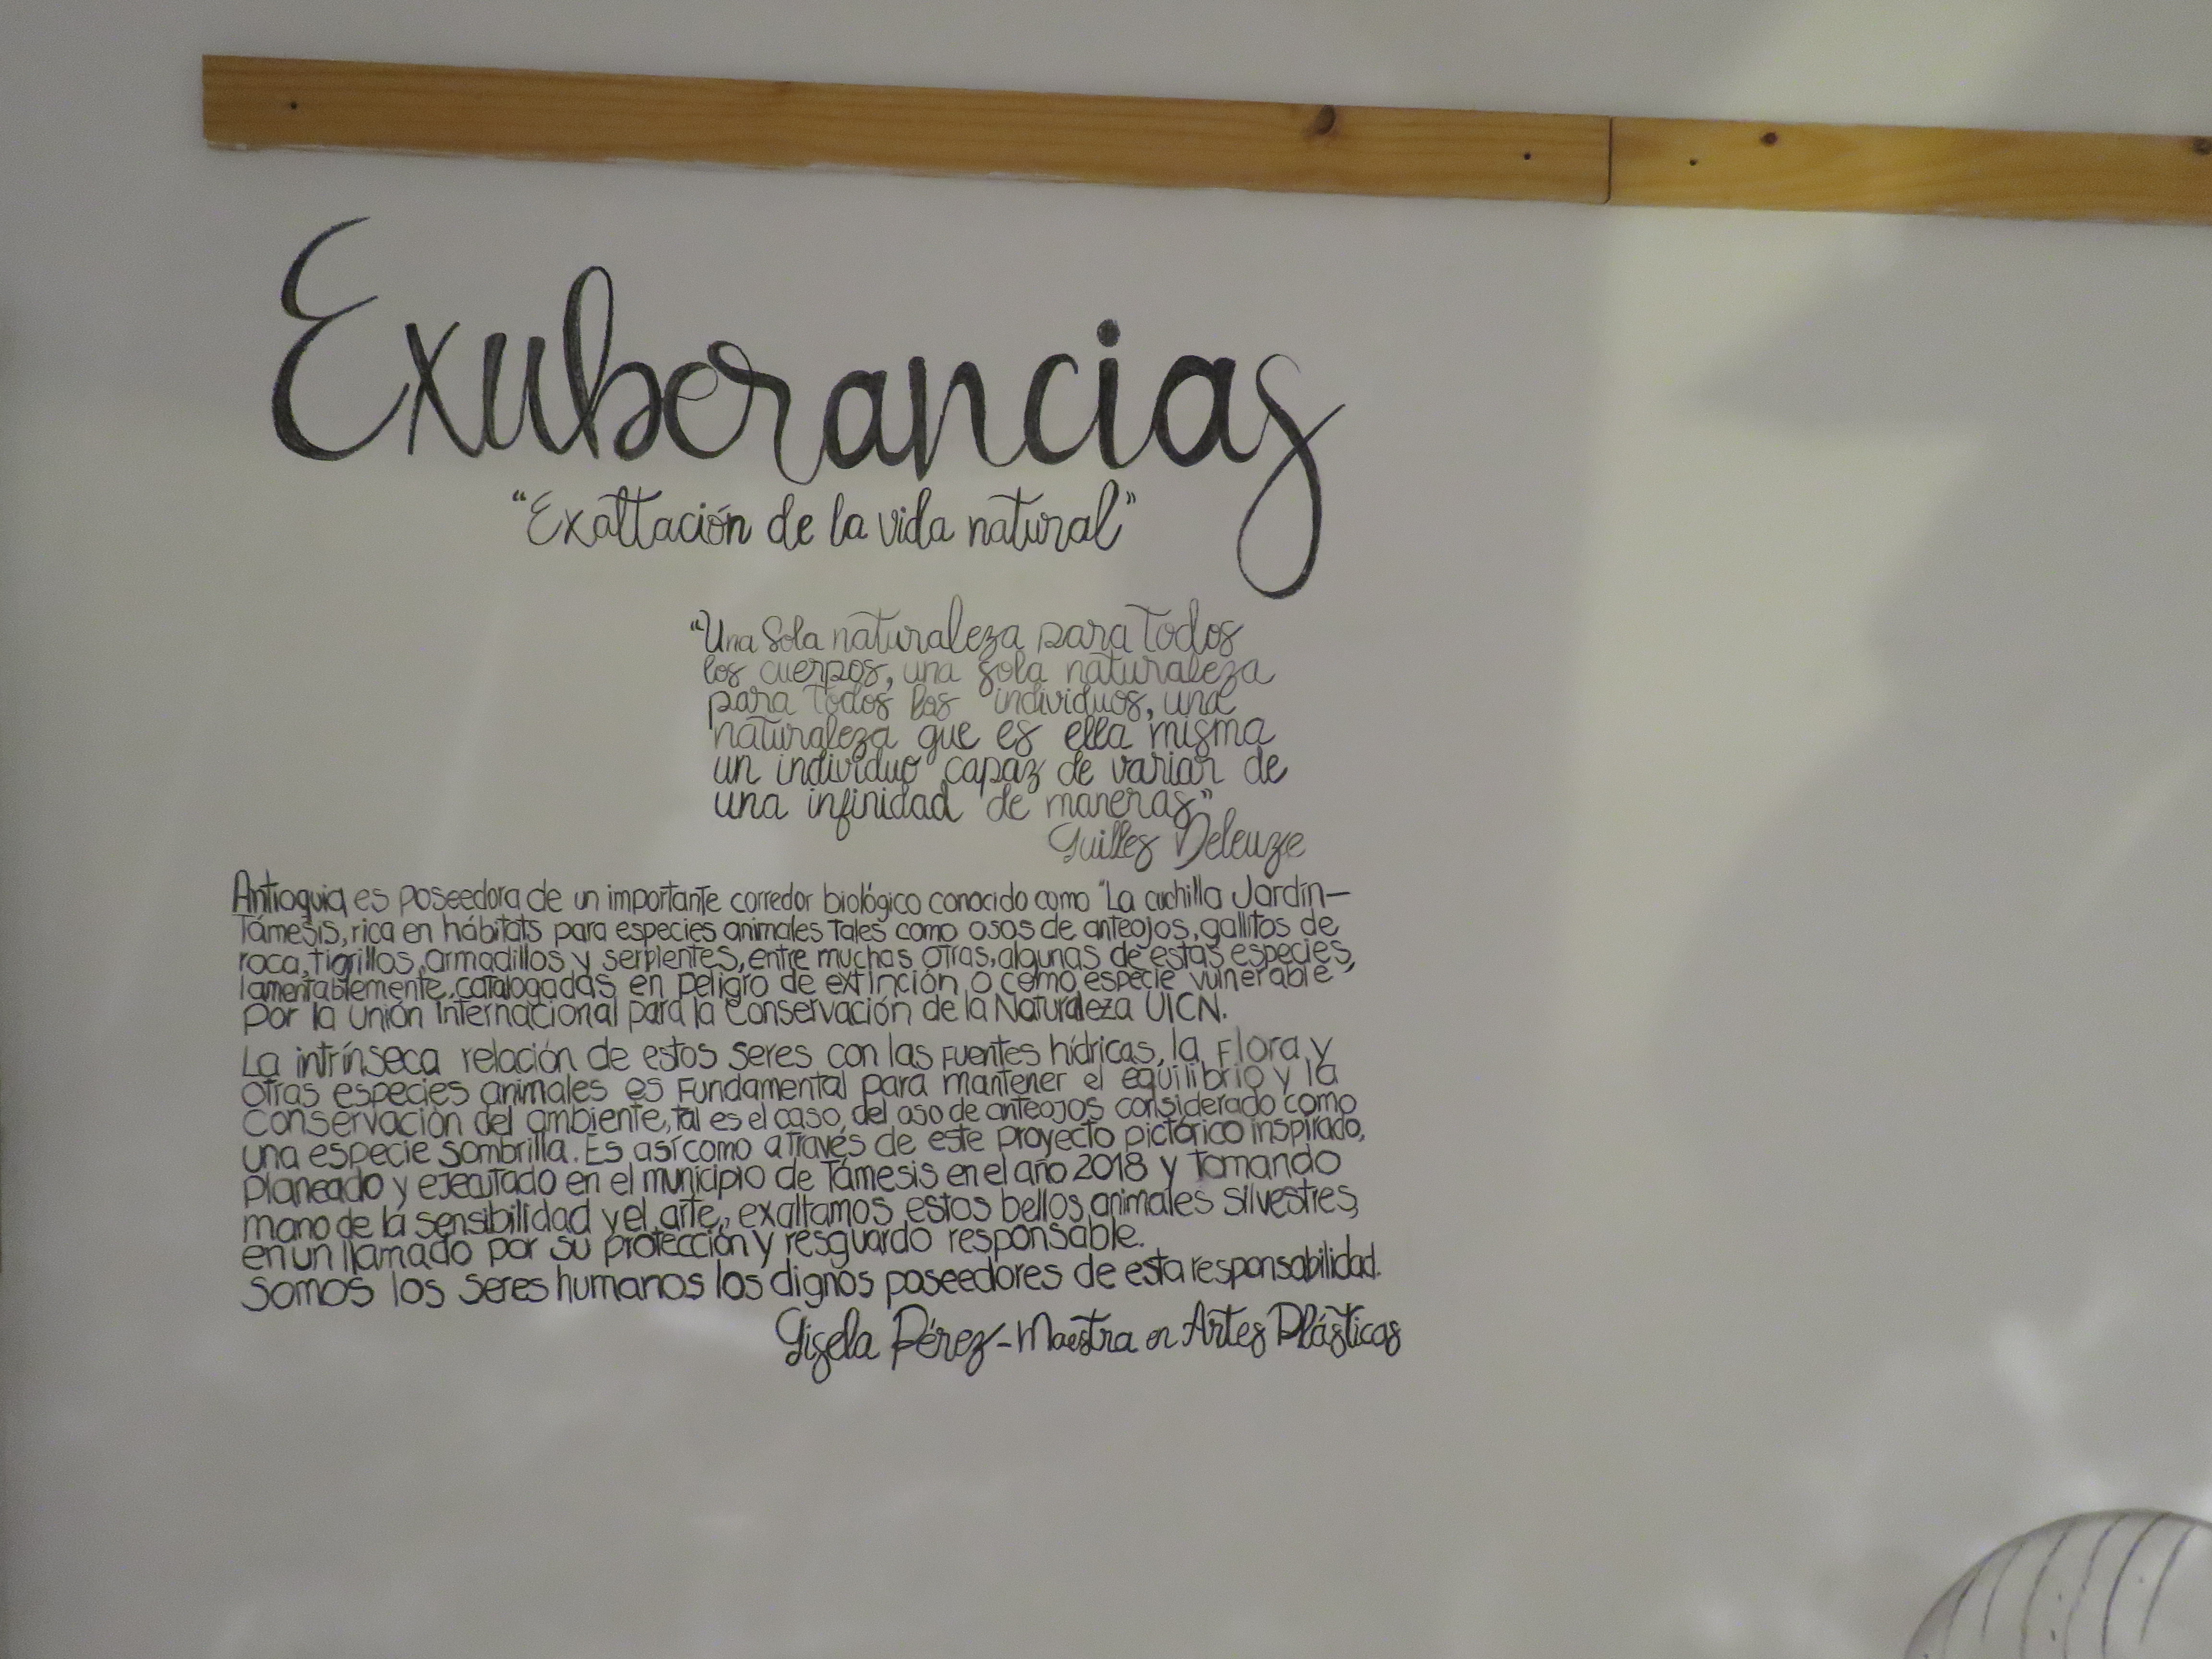 Exuberancias
“Exaltación de la vida natural”
“Una Sola naturaleza para Todos
los cuerpos, una sola naturaleza
para Todos los individuos, una
naturaleza que es ella misma
un individuo capaz de variar de
una infinidad de maneras”
Guilles Deleuze
Antioquia es poseedora de un importante corredor biológico conocido como “La cuchilla Jardín—
Támesis, rica en hábitats para especies animales Tales como osos de anteojos, gallitos de
roca, tigrillos, armadillos y serpientes, entre muchas otras, algunas de estas especies,
lamentablemente, catalogadas en peligro de extinción o como especie vulnerable
por la Unión Internacional para la Conservación de la Naturaleza UICN.
La intrínseca relación de estos seres con las Fuentes hídricas, la Flora y
otras especies animales es Fundamental para mantener el equilibrio y la
conservación del ambiente, tal es el caso, del oso de anteojos considerado como
una especie sombrilla. Es así como através de este proyecto pictórico inspirado,
planeado y ejecutado en el municipio de Támesis en el año 2018 y Tomando
mano de la sensibilidad y el arte, exaltamos estos bellos animales silvestres,
en un llamado por su protección y resguardo responsable.
Somos los seres humanos los dignos poseedores de esta responsabilidad.
Gisela Pérez - Maestra en Artes Plásticas